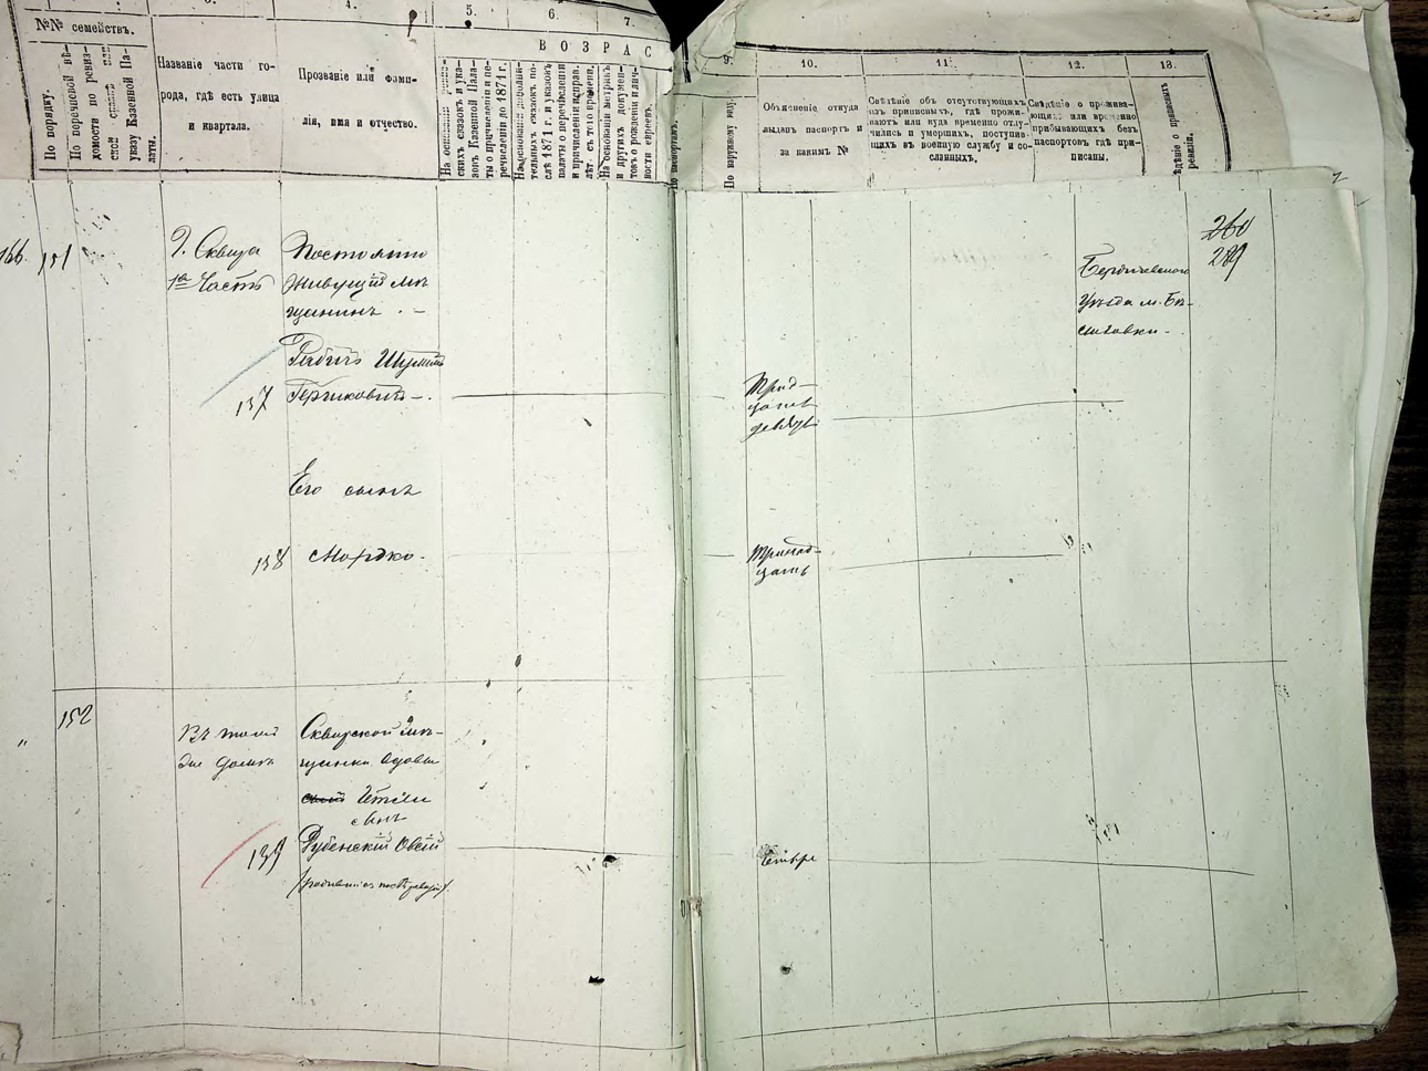 4.
5.
6.
7.
№№ семействъ.
По порядку.
По перечневой вѣ-
домости по ревиз-
ской
указу Казенной Па-
латы.
Названіе части го-
рода, гдѣ есть улица
и квартала.
Прозваніе или фами-
лія, имя и отчество.
ВОЗРАС
На основаніи
скихъ сказокъ и ука-
зовъ Казенной Пала-
ты о причисленіи и пе-
речисленіи до 1871 г.
На основаніи дополни-
тельныхъ сказокъ по-
слѣ 1871 г. и указовъ
палаты о перечисленіи
и причисленіи исправ.
лѣт. съ того времени.
На основаніи метрикъ
и другихъ докумен-
товъ о рожденіи и лич-
ности евреевъ.
По паспортамъ.
9.
10.
11.
12.
13.
По наружному виду.
Объясненіе откуда
выданъ паспортъ и
за какимъ №
Свѣдѣніе объ отсутствующихъ
изъ приписныхъ, гдѣ прожи-
ваютъ или куда временно отлу-
чились и умершихъ, поступив-
щихъ въ военную службу и со-
сланныхъ.
Свѣдѣніе о прожива-
ющихъ или временно
прибывающихъ безъ
паспортовъ гдѣ при-
писаны.
ревизіи.
166. 151
Г. Сквира
1я Часть
Постоянно
живущій мѣ-
щанинъ
137
Гершковичъ
Трид-
цать
девять
Бердичевскаго
Уѣзда м. Бѣ-
лиловки
260
289
Его сынъ
138 Мордко.
Тринад-
цать
" 152
Въ томъ
же домѣ
Сквирской мѣ-
щанки вдовы
сынъ
139 Рубенскій Овсій